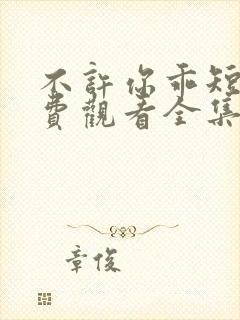 不許你乖短
費觀看全集
章俊